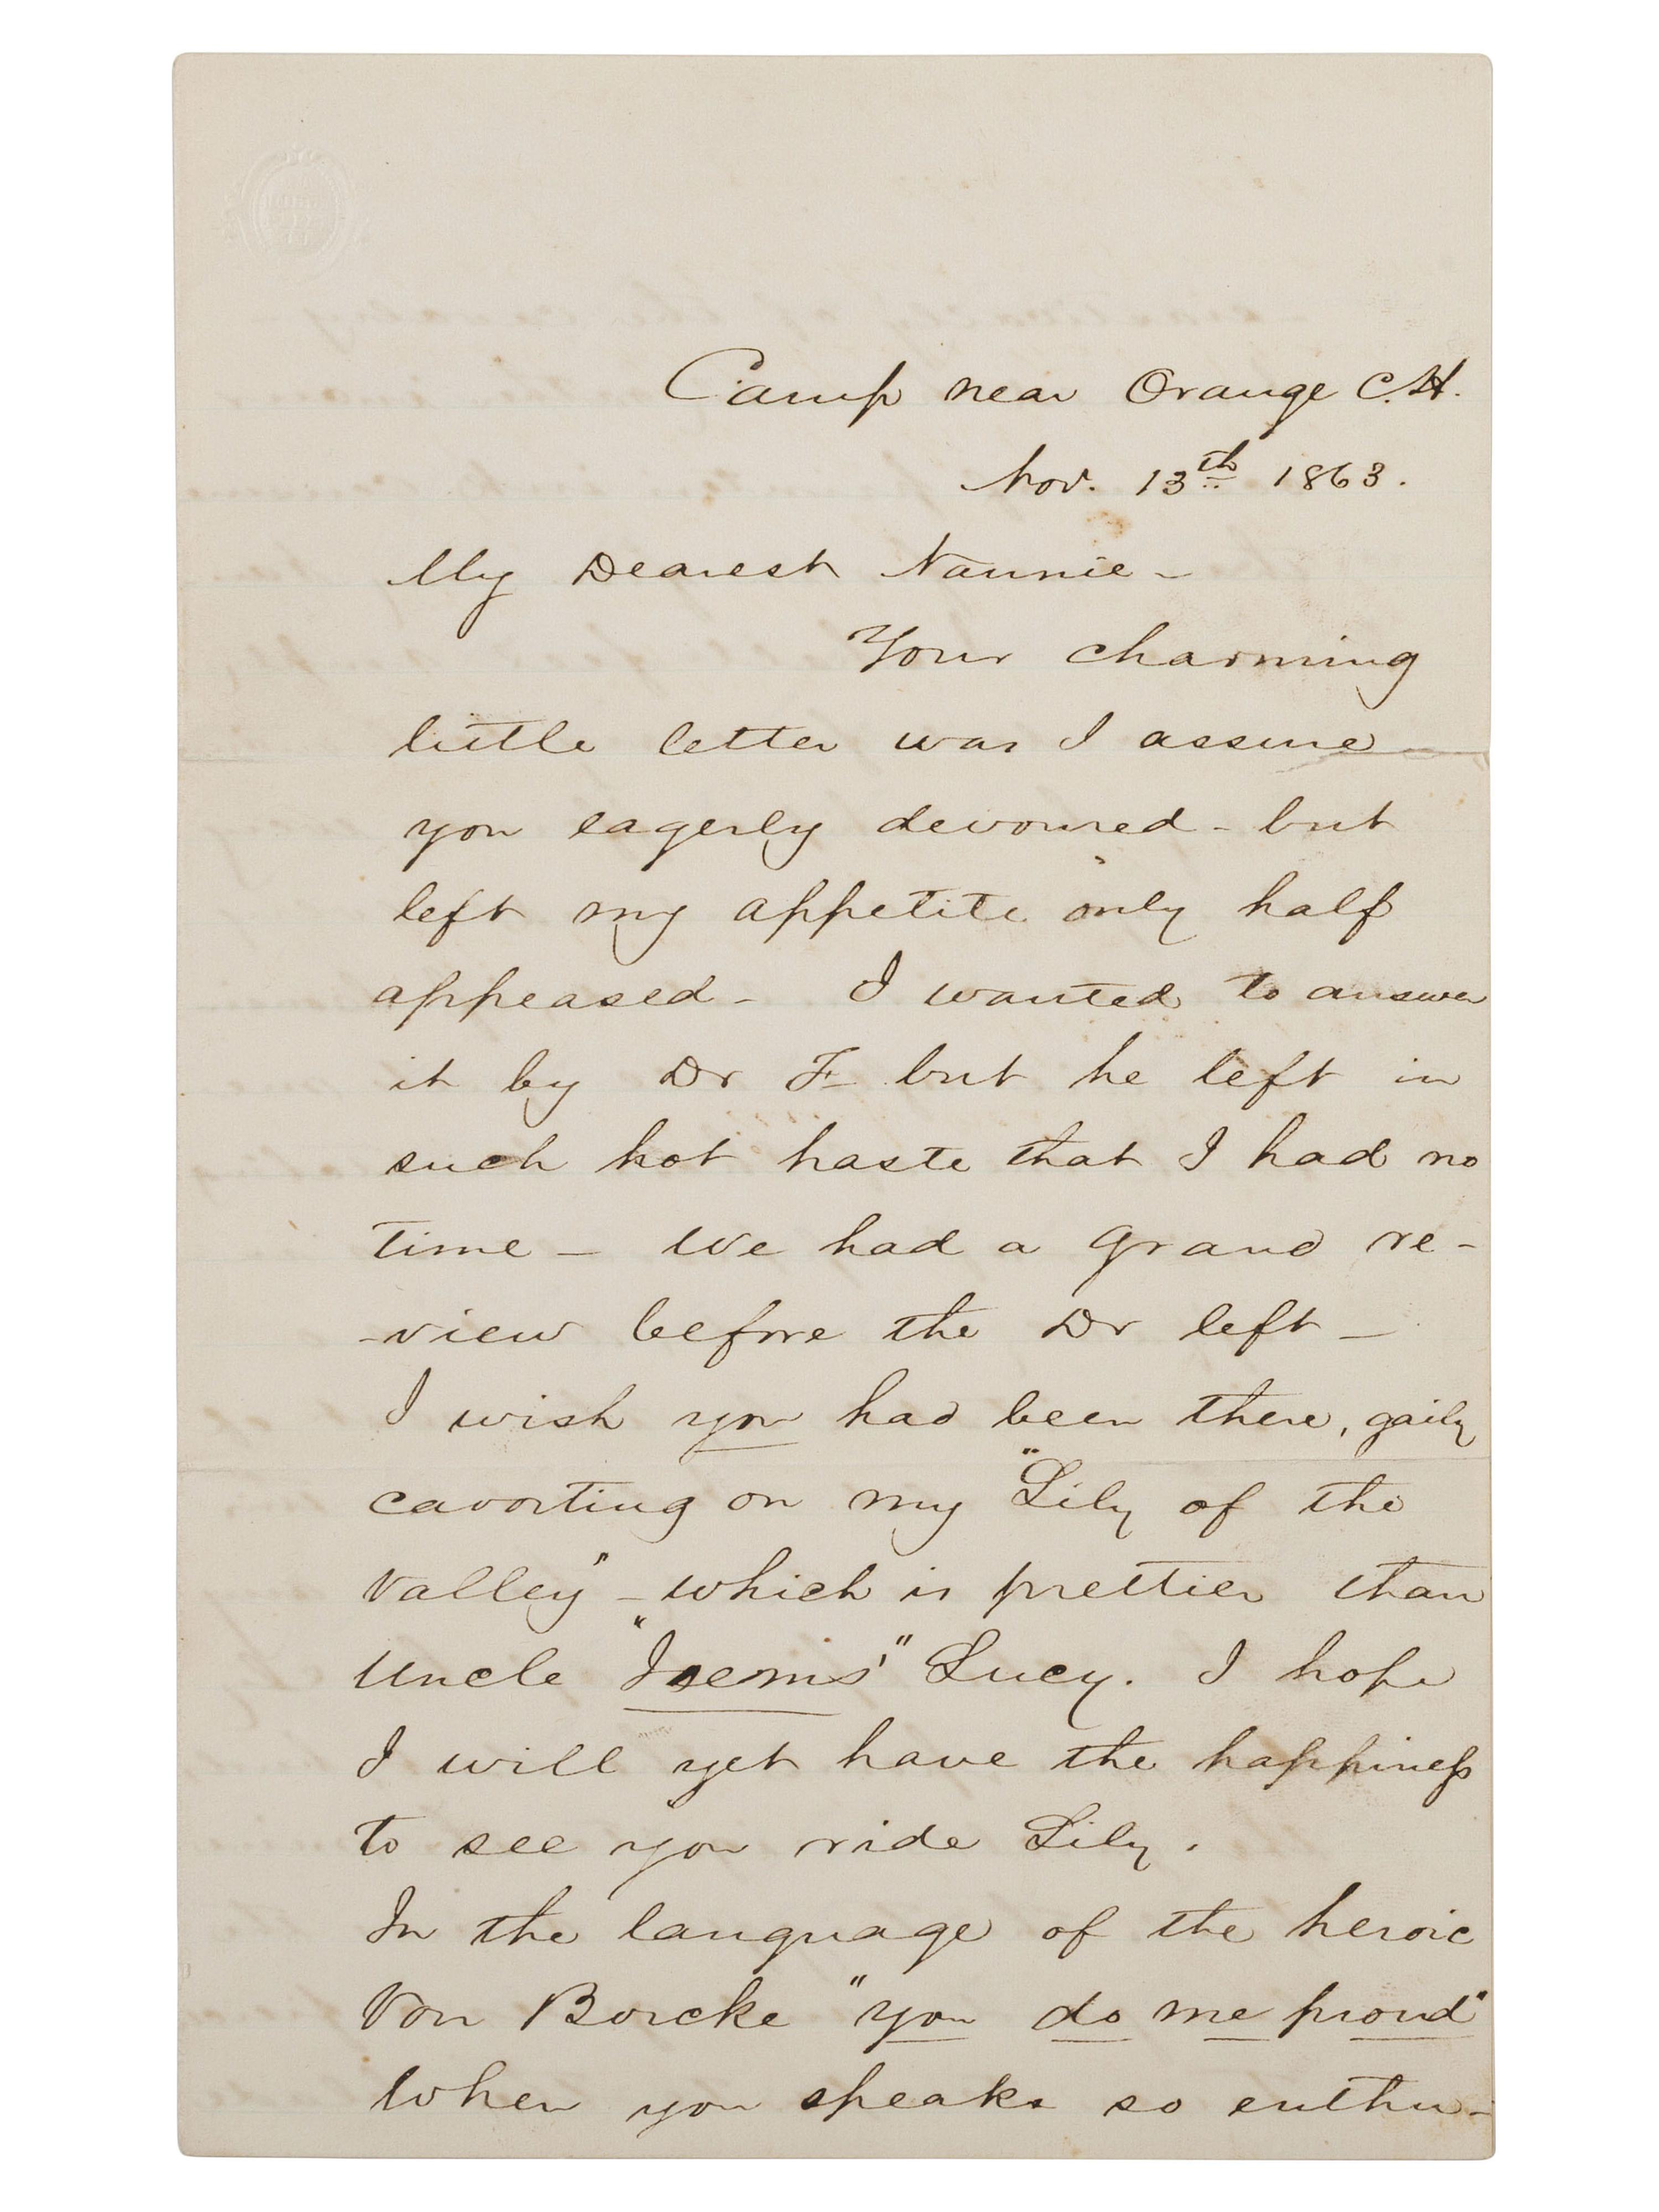 Camp near Orange C.H.
Nov. 13th 1863.
My Dearest Nannie –
Your charming
little letter was I assure
you eagerly devoured – but
left my appetite only half
appeased – I wanted to answer
it by Dr F– but he left in
such hot haste that I had no
time – We had a grand re-
-view before the Dr left –
I wish you had been there, gaily
cavorting on my "Lily of the
Valley" – which is prettier than
Uncle "Jeems'" Lucy. I hope
I will yet have the happiness
to see you ride Lily.
In the language of the heroic
Von Borcke "you do me proud"
When you speak so enthu-